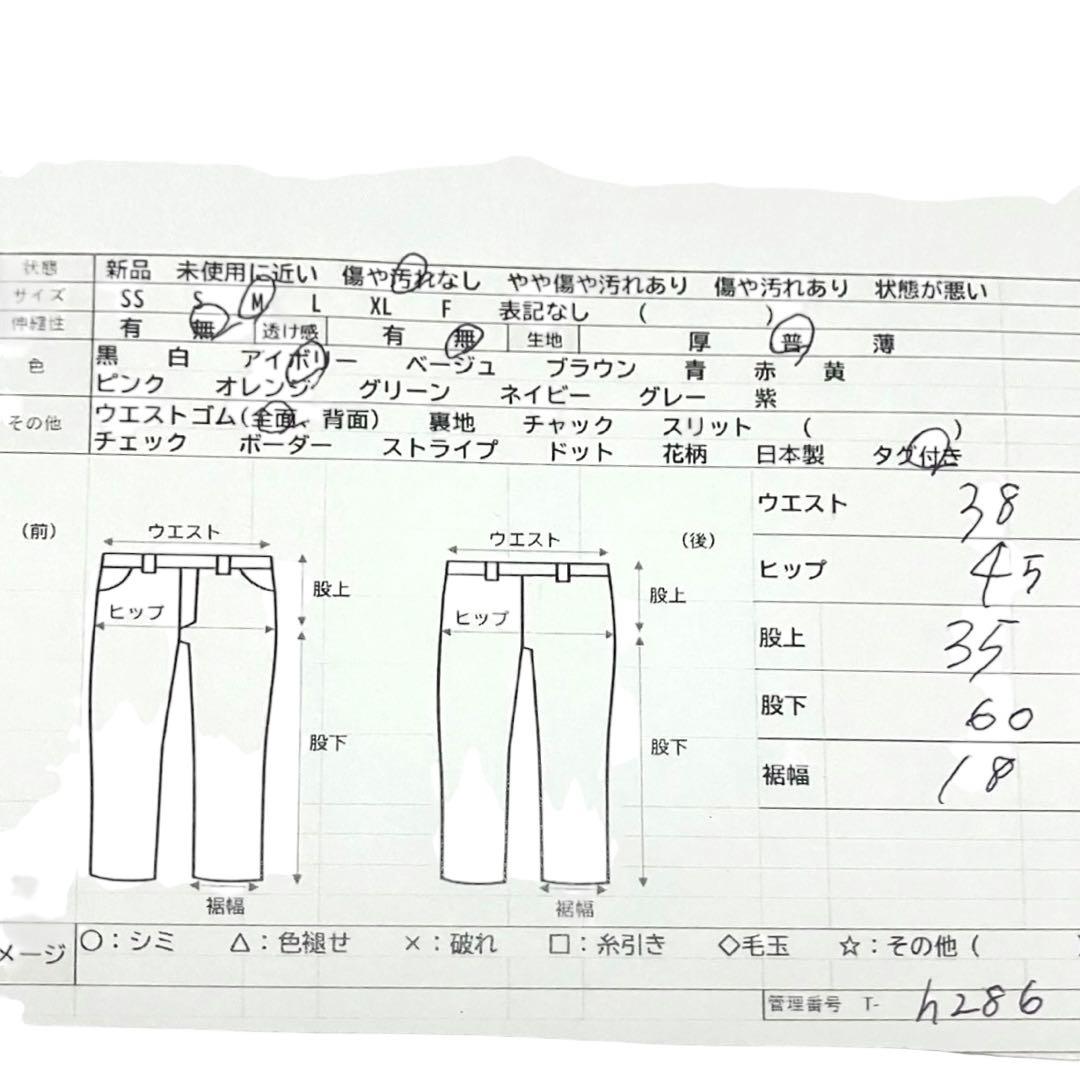 状態 新品 未使用に近い 傷や汚れなし やや傷や汚れあり 傷や汚れあり 状態が悪い
サイズ SS S M L XL F 表記なし ( )
伸縮性 有 無 透け感 有 無 生地 厚 普 薄
色 黒 白 アイボリー ベージュ ブラウン 青 赤 黄
ピンク オレンジ グリーン ネイビー グレー 紫
その他 ウエストゴム(全面、背面) 裏地 チャック スリット ( )
チェック ボーダー ストライプ ドット 花柄 日本製 タグ付き
ウエスト 38
ヒップ 45
股上 35
股下 60
裾幅 18
(前)
ウエスト
股上
ヒップ
股下
裾幅
(後)
ウエスト
股上
ヒップ
股下
裾幅
メージ ○：シミ △：色褪せ ×：破れ □：糸引き ◇毛玉 ☆：その他 ( )
管理番号 T- h286